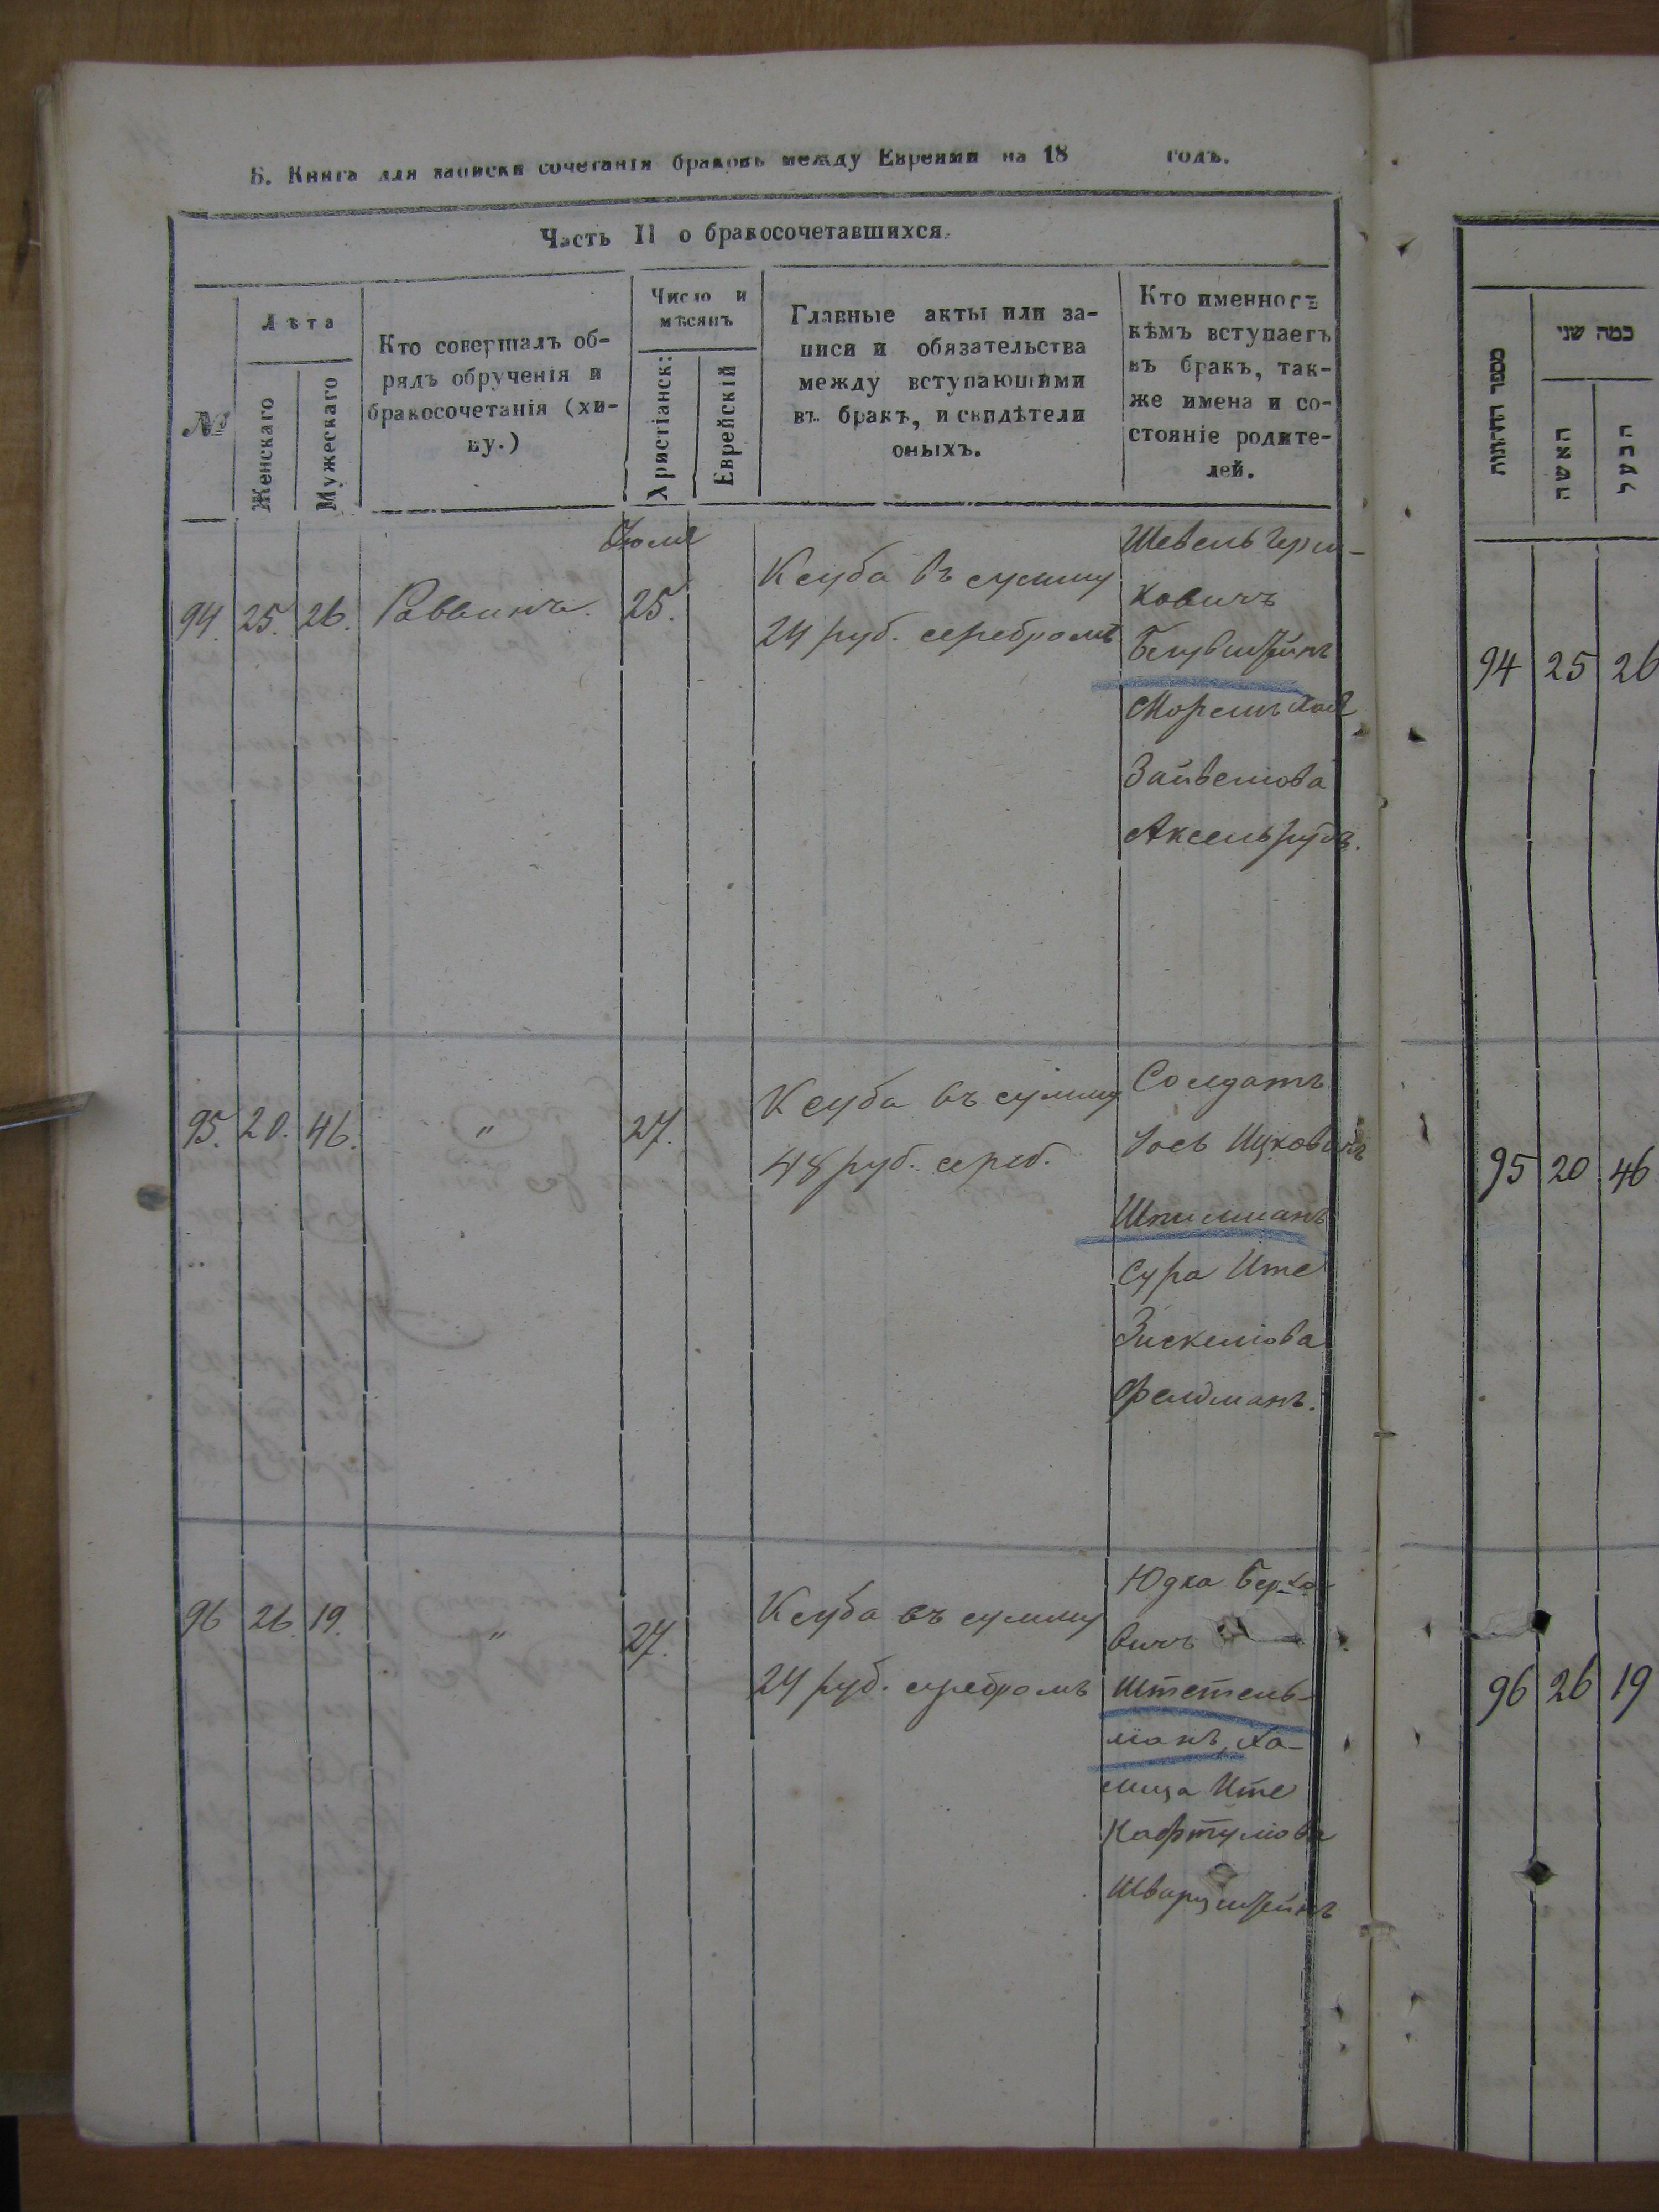 Б. Книга для записки сочетанія браковъ между Евреями на 18 годъ.
Часть II о бракосочетавшихся.
№
Лѣта
Женскаго
Мужескаго
Кто совершалъ об-
рядъ обрученія и
бракосочетанія (хи-
пу.)
Число и
мѣсяцъ
Христіанск:
Еврейскій
Главные акты или за-
писи и обязательства
между вступающими
въ бракъ, и свидѣтели
оныхъ.
Кто именно съ
кѣмъ вступаетъ
въ бракъ, так-
же имена и со-
стояніе родите-
лей.
Іюля
94. 25. 26. Раввинъ. 25.
Ксуба въ сумму
24 руб. серебромъ
Шевель Герш-
ковичъ
Хая
Зайвелiова
Аксельрудъ.
95. 20. 46. " 27.
Ксуба въ сумму
48 руб. сереб.
Солдатъ
Іось Ицковичъ
Шпилманъ
Сура Ите
Зискелiова
Фелдманъ.
96 26. 19. " 27.
Ксуба въ сумму
24 руб. серебромъ
Юдка Берко-
вичъ
Штетель-
манъ, Ха-
Ите
Нафтулiова
Шварцштейнъ
מספר החתונות
כמה שני
האשה
הבעל
94 25 26
95 20 46
96 26 19